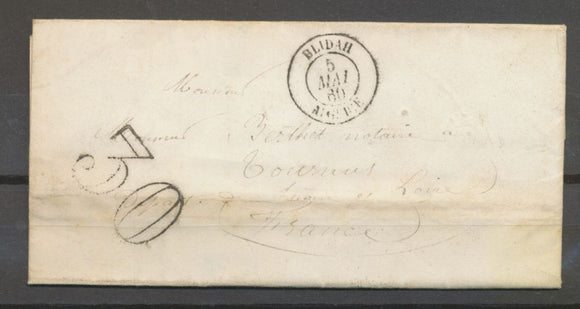 BLIDAH
5
MAI
60
ALGERIE
30
Monsieur
Monsieur Berthet notaire à
Tournus
Saone et Loire
France